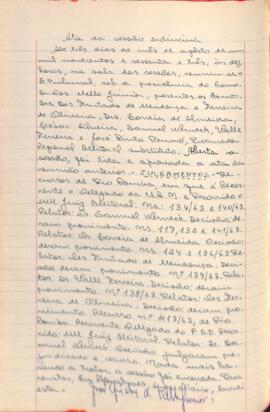 Ata da sessão ordinária
Aos três dias do mês de agôsto de um
mil novecentos e sessenta e três, às dez
horas, na sala das sessões, reuniu-se o
Tribunal, sob a presidência do Exmo.
Sr. Des. Mello Júnior, presentes os Exmos.
Srs. Des. Furtado de Mendonça e Ferreira
de Oliveira, Drs. Corrêa de Almeida,
Cesar Silveira, Samuel Werneck, Valle
Ferreira e José Pinto Renno, Procurador
Regional Eleitoral substituto. Aberta a
sessão, foi lida e aprovada a ata da
reunião anterior. JULGAMENTOS - Re-
cursos de Rio Pomba, em que é Recor-
rente o Delegado da U.D.N. e Recorrido o
MM. Juiz Eleitoral: Nos. 134/63 e 140/63
Relator: Dr. Samuel Werneck. Decisão:
deram provimento. Nos. 117, 131 e 141/63.
Relator: Dr. Corrêa de Almeida. Decisão:
deram provimento. Nos 124 e 136/63. Re-
lator: Des. Furtado de Mendonça. Deci-
são: deram provimento. Nº 129/63. Rela-
tor: Dr. Valle Ferreira. Decisão: deram
provimento. Nº 138/63. Relator: Des. Fer-
reira de Oliveira. Decisão: deram pro-
vimento. Recurso nº 413/63, de Rio
Pomba. Recorrente Delegado do P.S.D. Recor-
rido: MM. Juiz Eleitoral. Relator: Dr. Sa-
muel Werneck. Decisão: julgaram pre-
judicado o recurso. Nada mais ha-
vendo a tratar, a sessão foi encerrada. Para
constar, Eu,